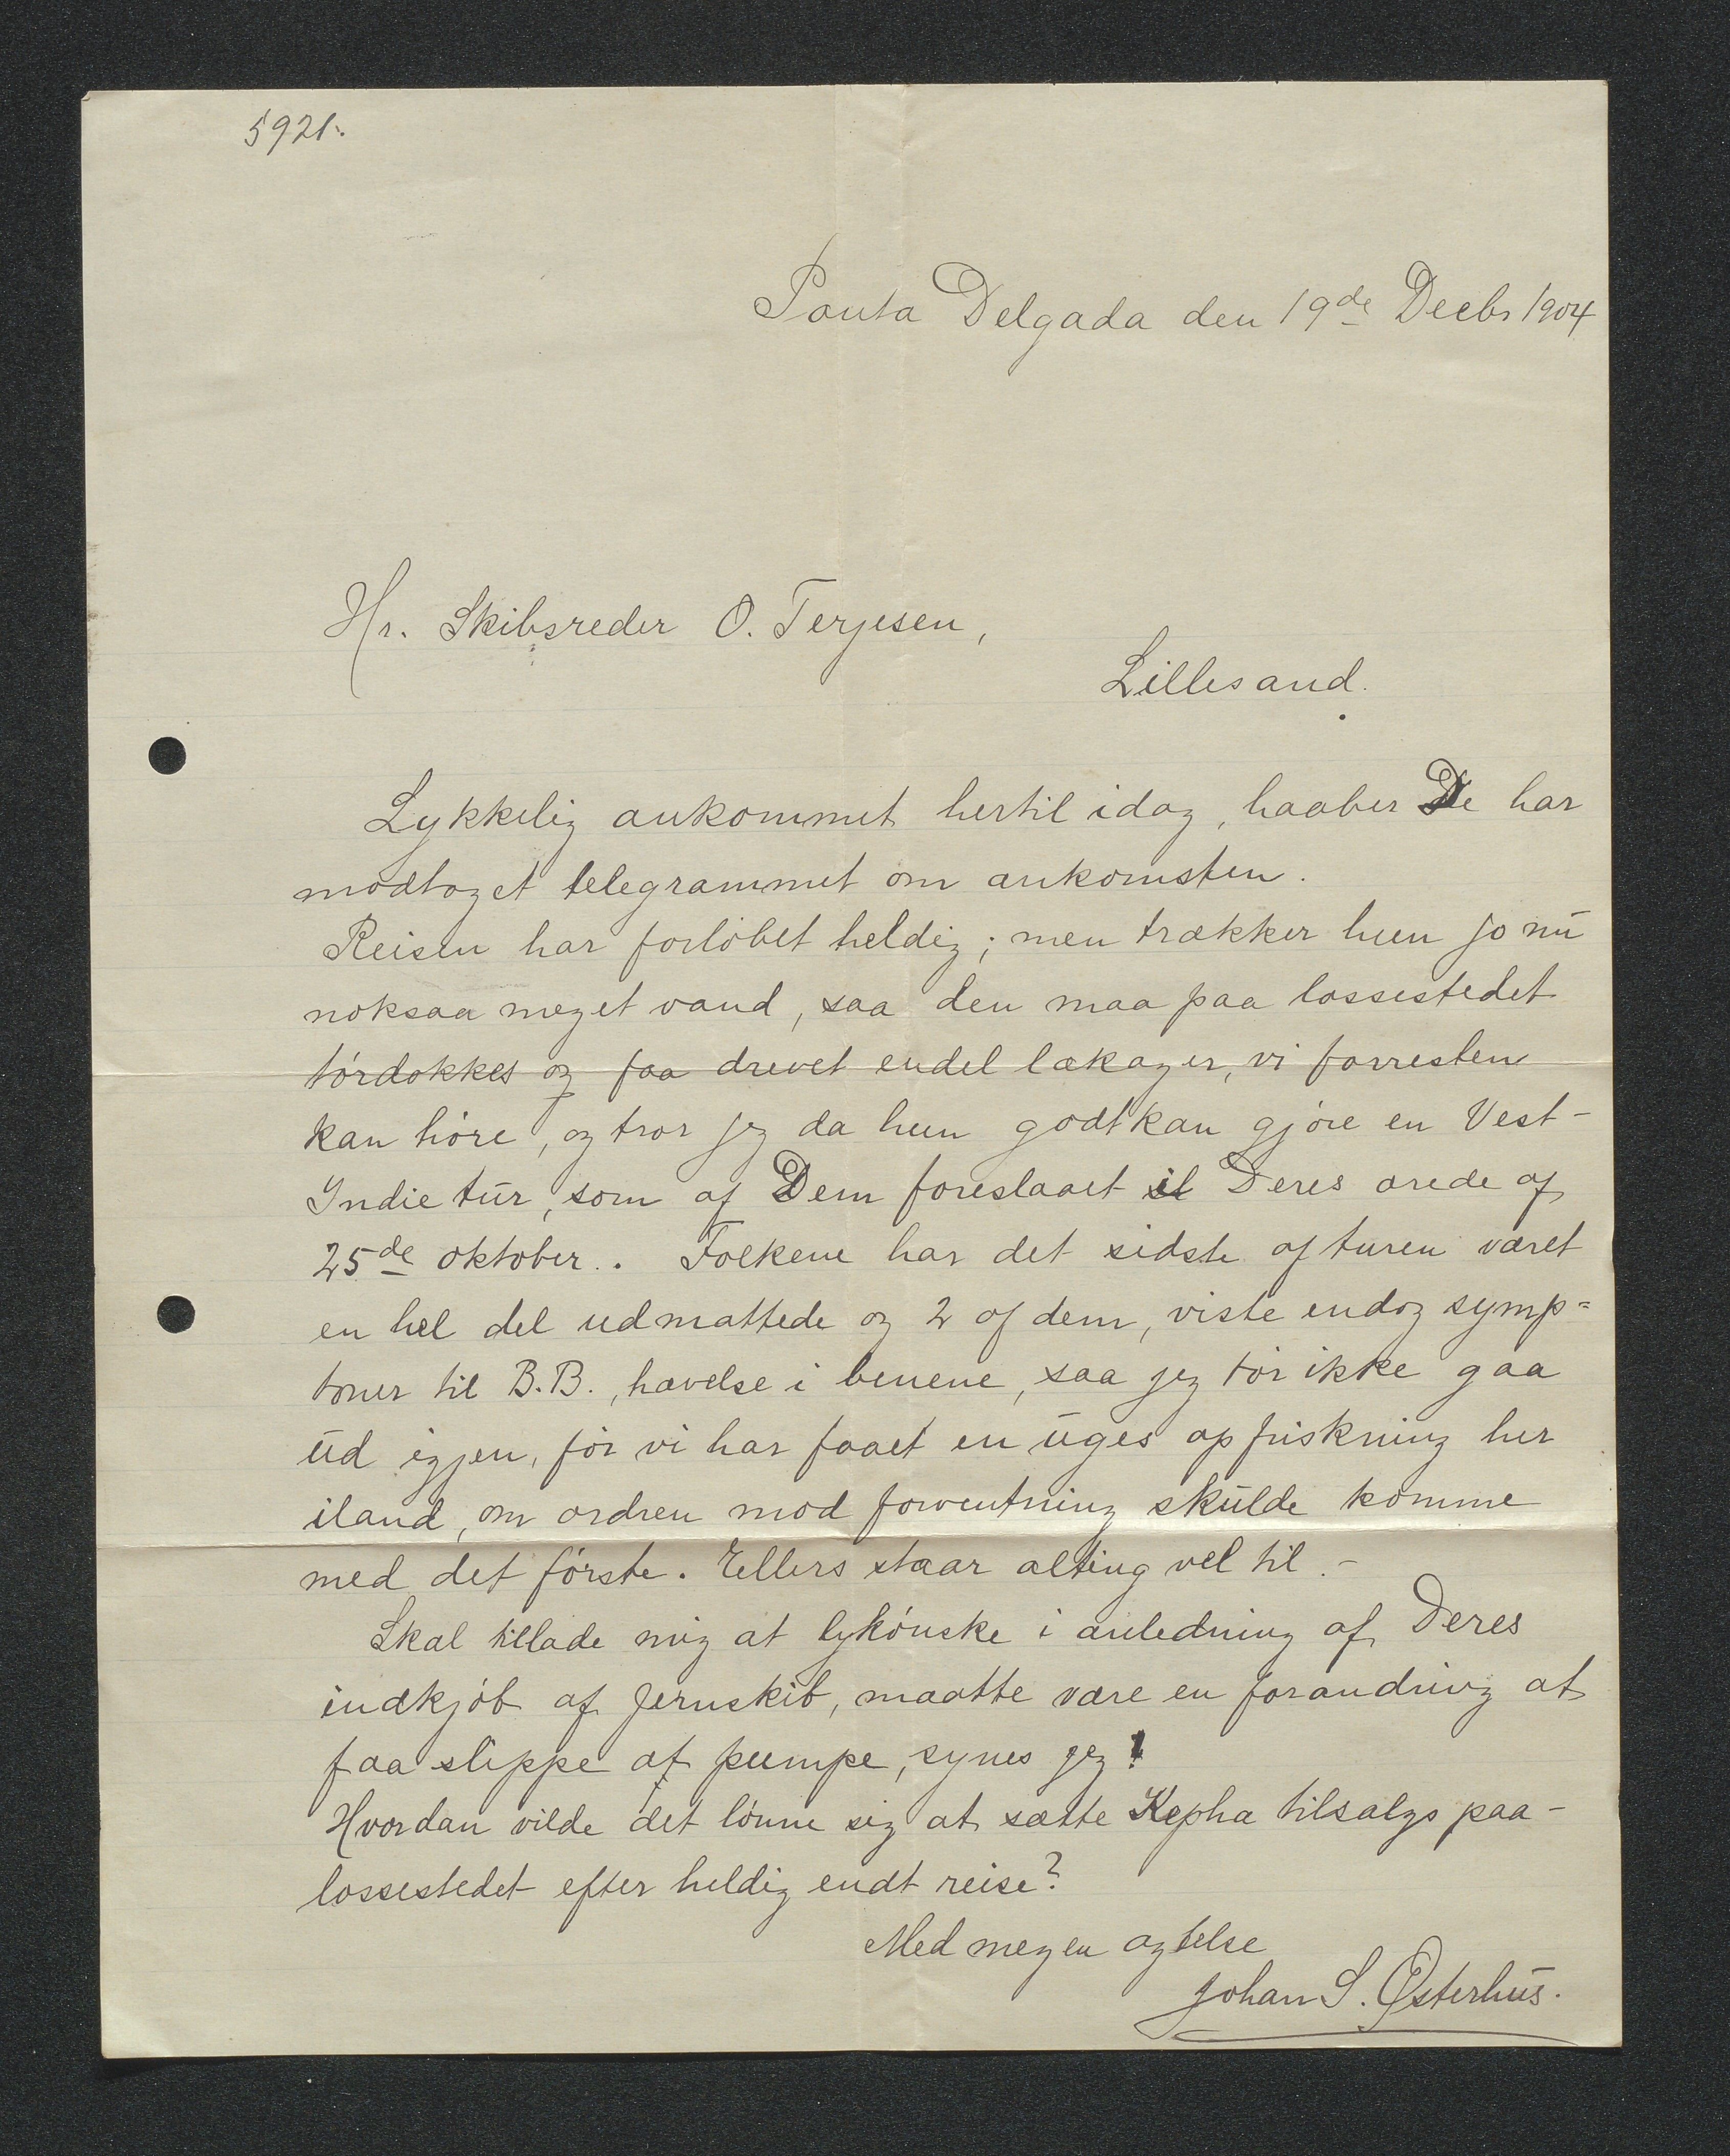 5921.
Ponta Delgada den 19de Decbr 1904
Hr. Skibsreder O. Terjesen,
Lillesand.
Lykkelig ankommet hertil idag, haaber De har
modtaget telegrammet om ankomsten.
Reisen har forløbet heldig; men trækker hun jo nu
noksaa meget vand, saa den maa paa lossestedet
tørdokkes og faa drevet endel lækager, vi forresten
kan høre, og tror jeg da hun godt kan gjøre en Vest-
Indie tur, som af Dem foreslaaet i Deres ærede af
25de oktober. Folkene har det sidste af turen været
en hel del udmattede og 2 af dem, viste endog symp=
tomer til B.B., hævelse i benene, saa jeg tør ikke gaa
ud igjen, før vi har faaet en uges opfriskning her
iland, om ordren mod forventning skulde komme
med det første. Ellers staar alting vel til. -
Skal tillade mig at lykønske i anledning af Deres
indkjøb af Jernskib, maatte være en forandring at
faa slippe at pumpe, synes jeg!
Hvordan vilde det lønne sig at sætte Kepha tilsalgs paa-
lossestedet efter heldig endt reise?
Med megen agtelse
Johan S. Østerhus.